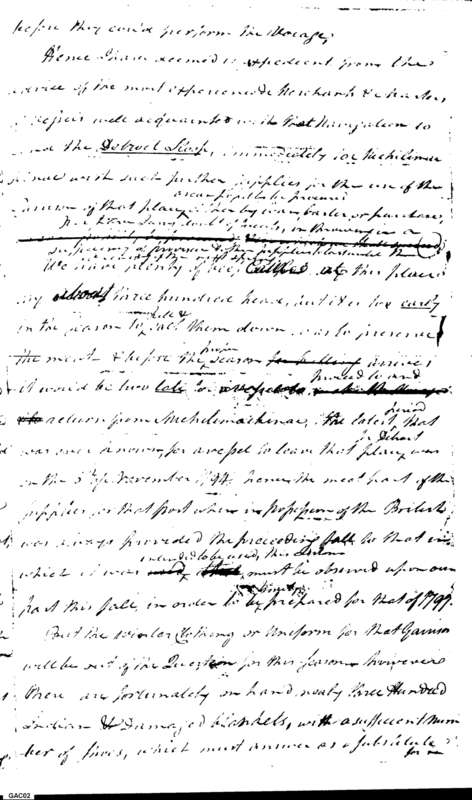 before they could perform the Voyage,
Hence I have deemed it expedient from the
advice of the most experienced Merchants & Masters
of Vessels well acquainted with that Navigation to
send the Detroit Sloop, immediately for Michilimac
kinac with such further supplies for the use of the
as can possibly be procured
Garrison of that place either by loan, barter or purchase,
We have plenty of beef, Cattle at this place
say about three hundred head, but it is too early
in the season to kill & salt them down so as to preserve
the meat & before the proper season arrives
proceed to and
it would be two late for a vessel to
return from Michilimackinac, The latest period that
for Detroit
was ever known, for a vessel to leave that place, was
on the 5th of November 1794. hence the most part of the
supplies for that post when in possession of the British
was always provided the preceeding fall to that in
intended to be used, this
which it was must be observed upon our
part this fall, in order to be prepared for that of 1797.
But the winter Clothing or Uniform for that Garrison
will be out of the Question for this season however
there are fortunately on hand nearly three Hundred
Indian & Damaged blankets, with a sufficient num
ber of shoes, which must answer as a substitute
for
GAC02